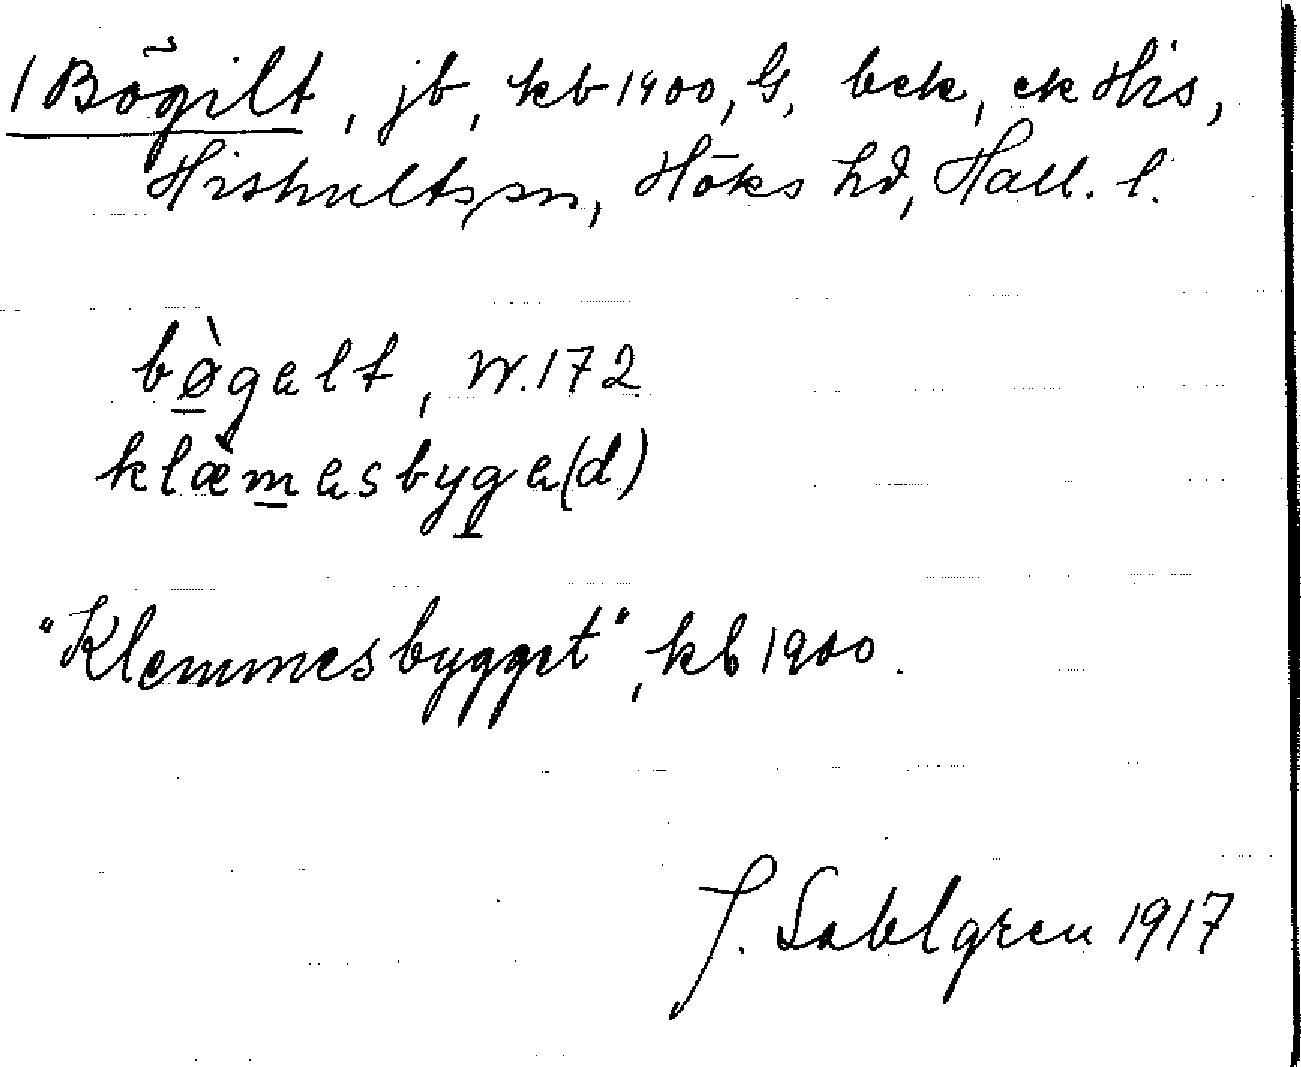 1 Bögilt, jb, kb 1900, G, bek, ek His,
Hishults sn, Höks hd, Hall. l.
bø̀gelt, W. 172
klæ̀mesbyge(d)
"Klemmesbygget", kb 1900.
J. Sahlgren 1917